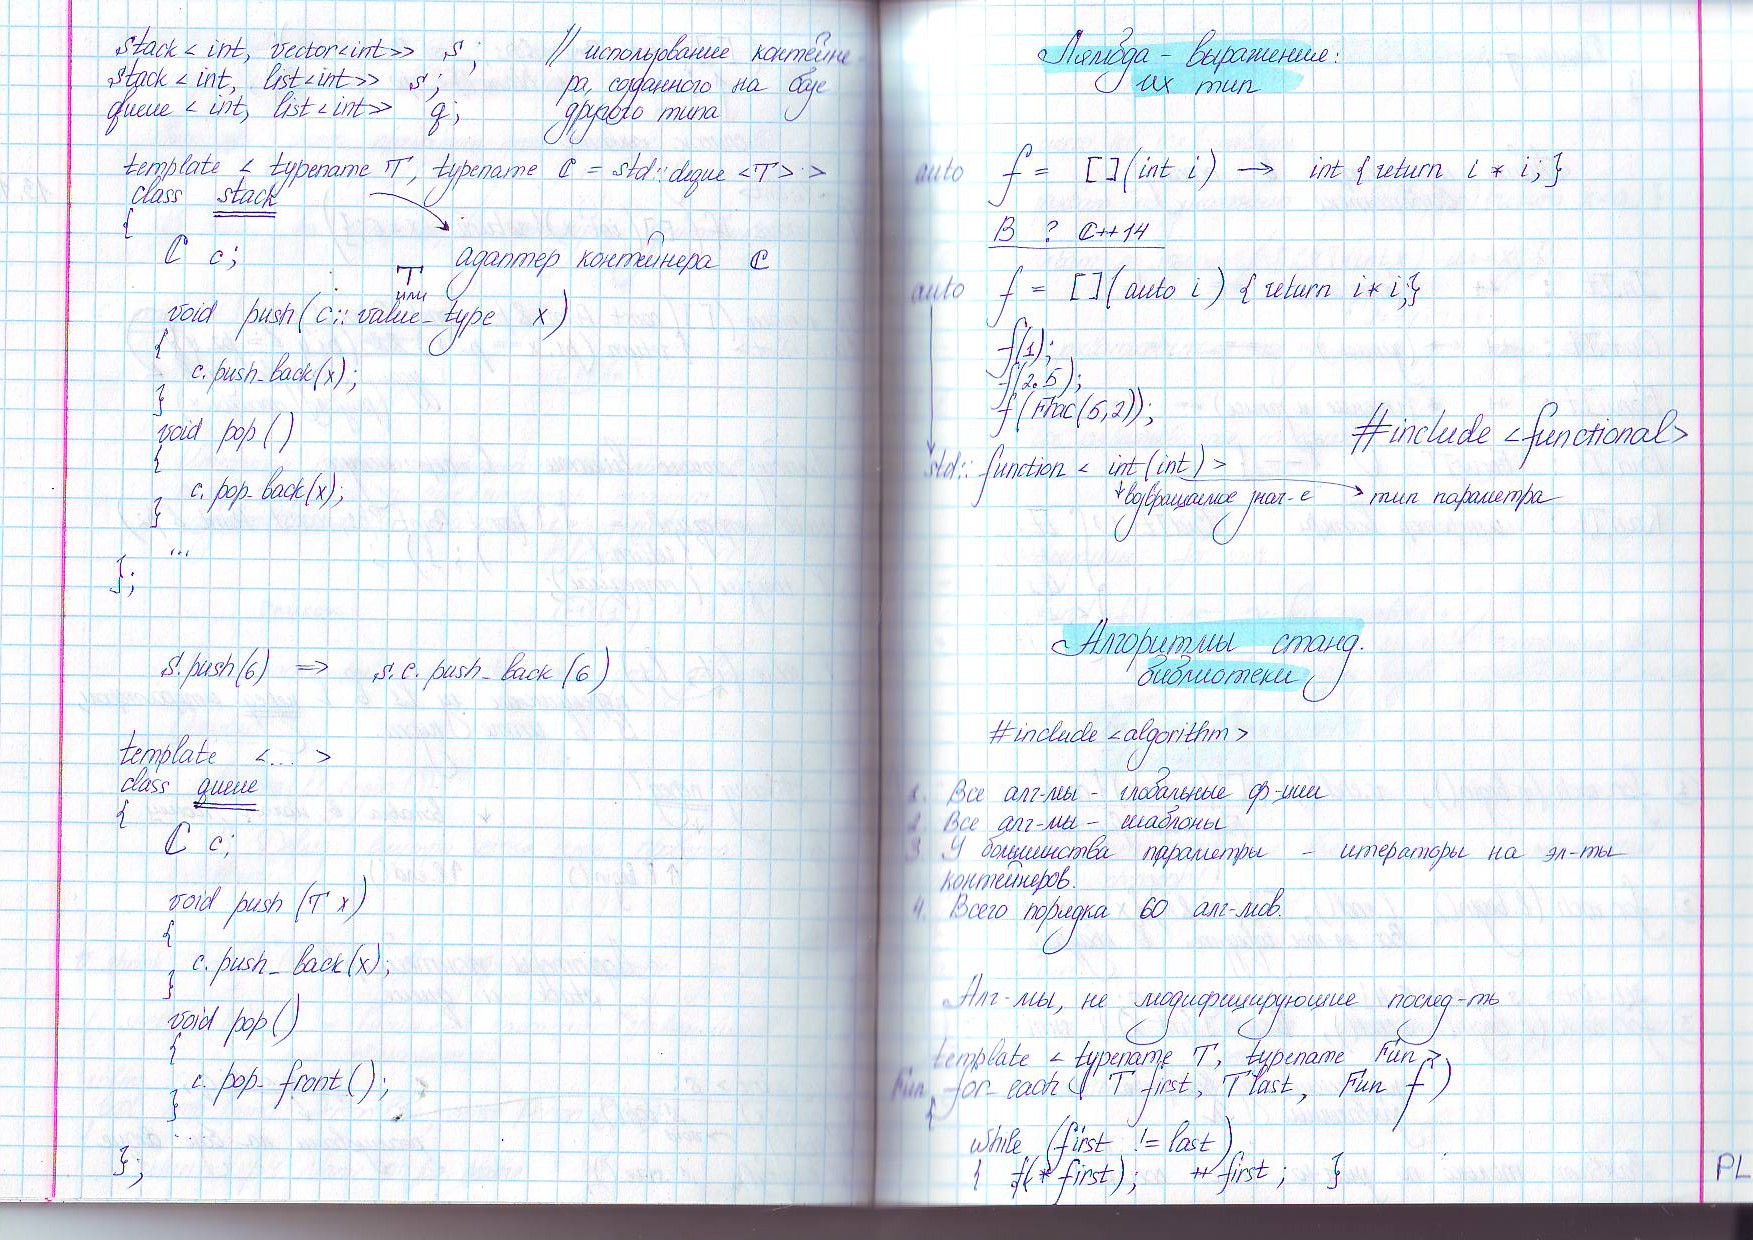 stack<int, vector<int>> s; // использование контейне
stack<int, list<int>> s; ра, созданного на базе
queue<int, list<int>> q; другого типа
template < typename T, typename C = std::deque <T> >
class stack
{
C c; адаптер контейнера C
T
или
void push(c::value_type x)
{
c.push_back(x);
}
void pop()
{
c.pop_back(x);
}
...
};
s.push(6) => s.c.push_back(6)
template <...>
class queue
{
C c;
void push (T x)
{
c.push_back(x);
}
void pop()
{
c.pop_front();
}
...
};
Лямбда-выражение:
их тип
auto f = [](int i) → int {return i * i;}
В ? C++14
auto f = [](auto i) {return i*i;}
f(1);
f(2.5);
f(Frac(5,2));
#include <functional>
std::function < int(int)>
возвращаемое знач-е → тип параметра
Алгоритмы станд.
библиотеки
#include <algorithm>
1. Все алг-мы - глобальные ф-ции
2. Все алг-мы - шаблоны
3. У большинства параметры - итераторы на эл-ты
контейнеров.
4. Всего порядка 60 алг-мов.
Алг-мы, не модифицирующие послед-ть
template < typename T, typename Fun >
Fun for_each ( T first, T last, Fun f )
{
while (first != last)
{ f(* first); ++first; }
PL